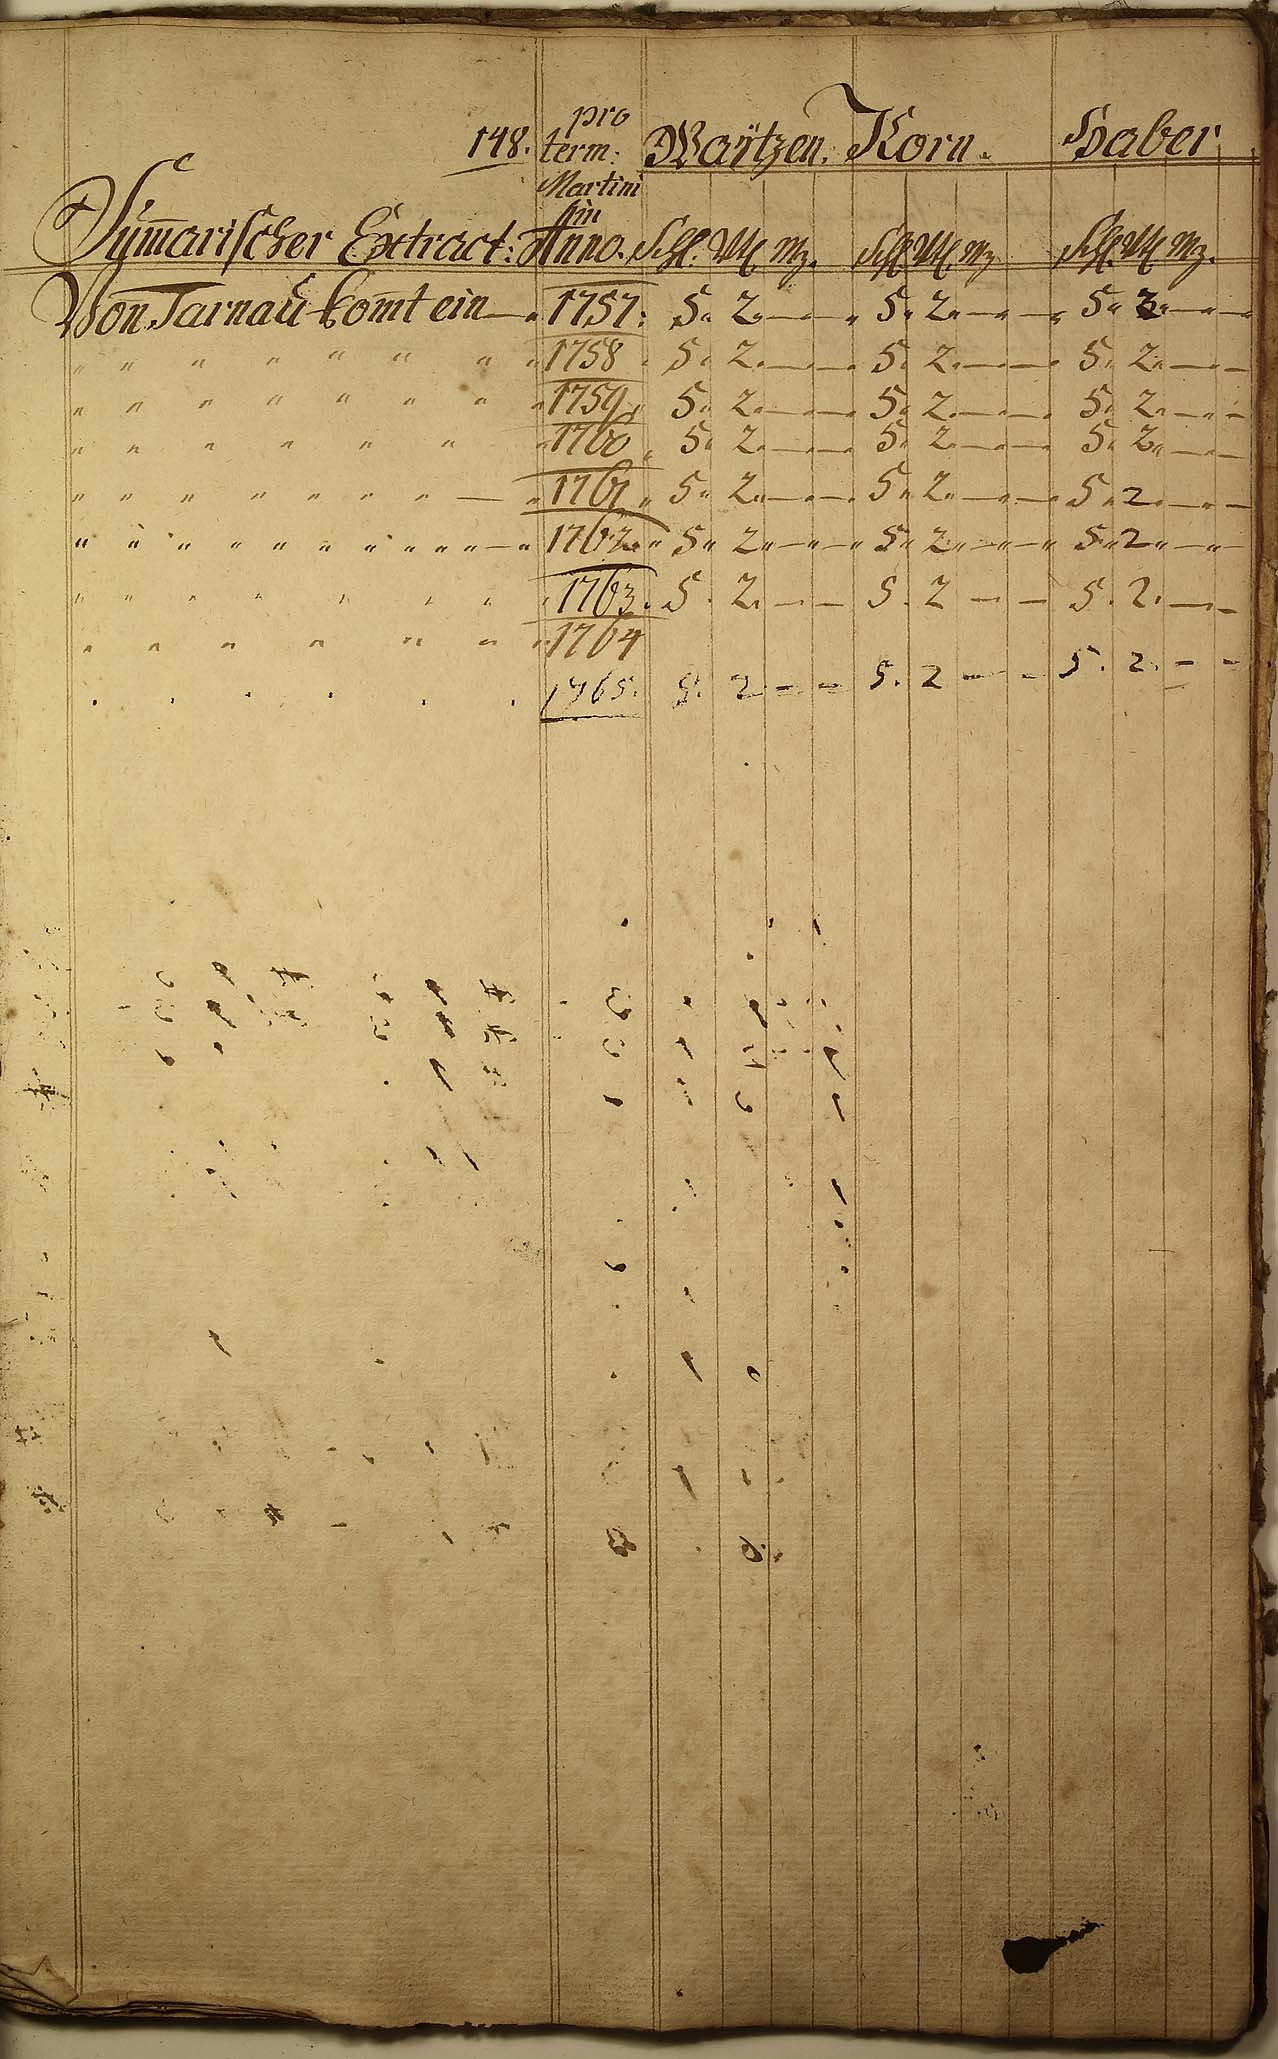 148. pro
term: Waÿtzen. Korn. Haber
Martini
in
Sum̄arischer Extract: Anno. Schl. Vtl. Mz. Schl. Vtl. Mz Schl. Vtl. Mz.
Von Tarnau kom̄t ein — " 1757: 5" 2" — " — " 5" 2" — " — " 5" 2" — " — "
" " " " " " " " 1758 5" 2" — " — " 5" 2" — " — 5" 2" — " —
" " " " " " " " 1759 5" 2" — " — " 5" 2" — " — 5" 2" — " —
" " " " " " " 1760 " 5" 2" — " — " 5" 2" — " — 5" 2" — —
" " " " " " " " — " 1761 " 5" 2" — " — 5" 2" — " — " 5" 2" — " —
" " " " " " " " " " " " — " 1762 " 5" 2" — " — " 5" 2" — " — " 5" 2" — " —
" " " " " " " " 1763. 5. 2. — — 5. 2 — — 5. 2. — —
" " " " " " " 1764
. . . . . . . 1765. 5. 2 — — 5. 2 — — 5. 2. — —